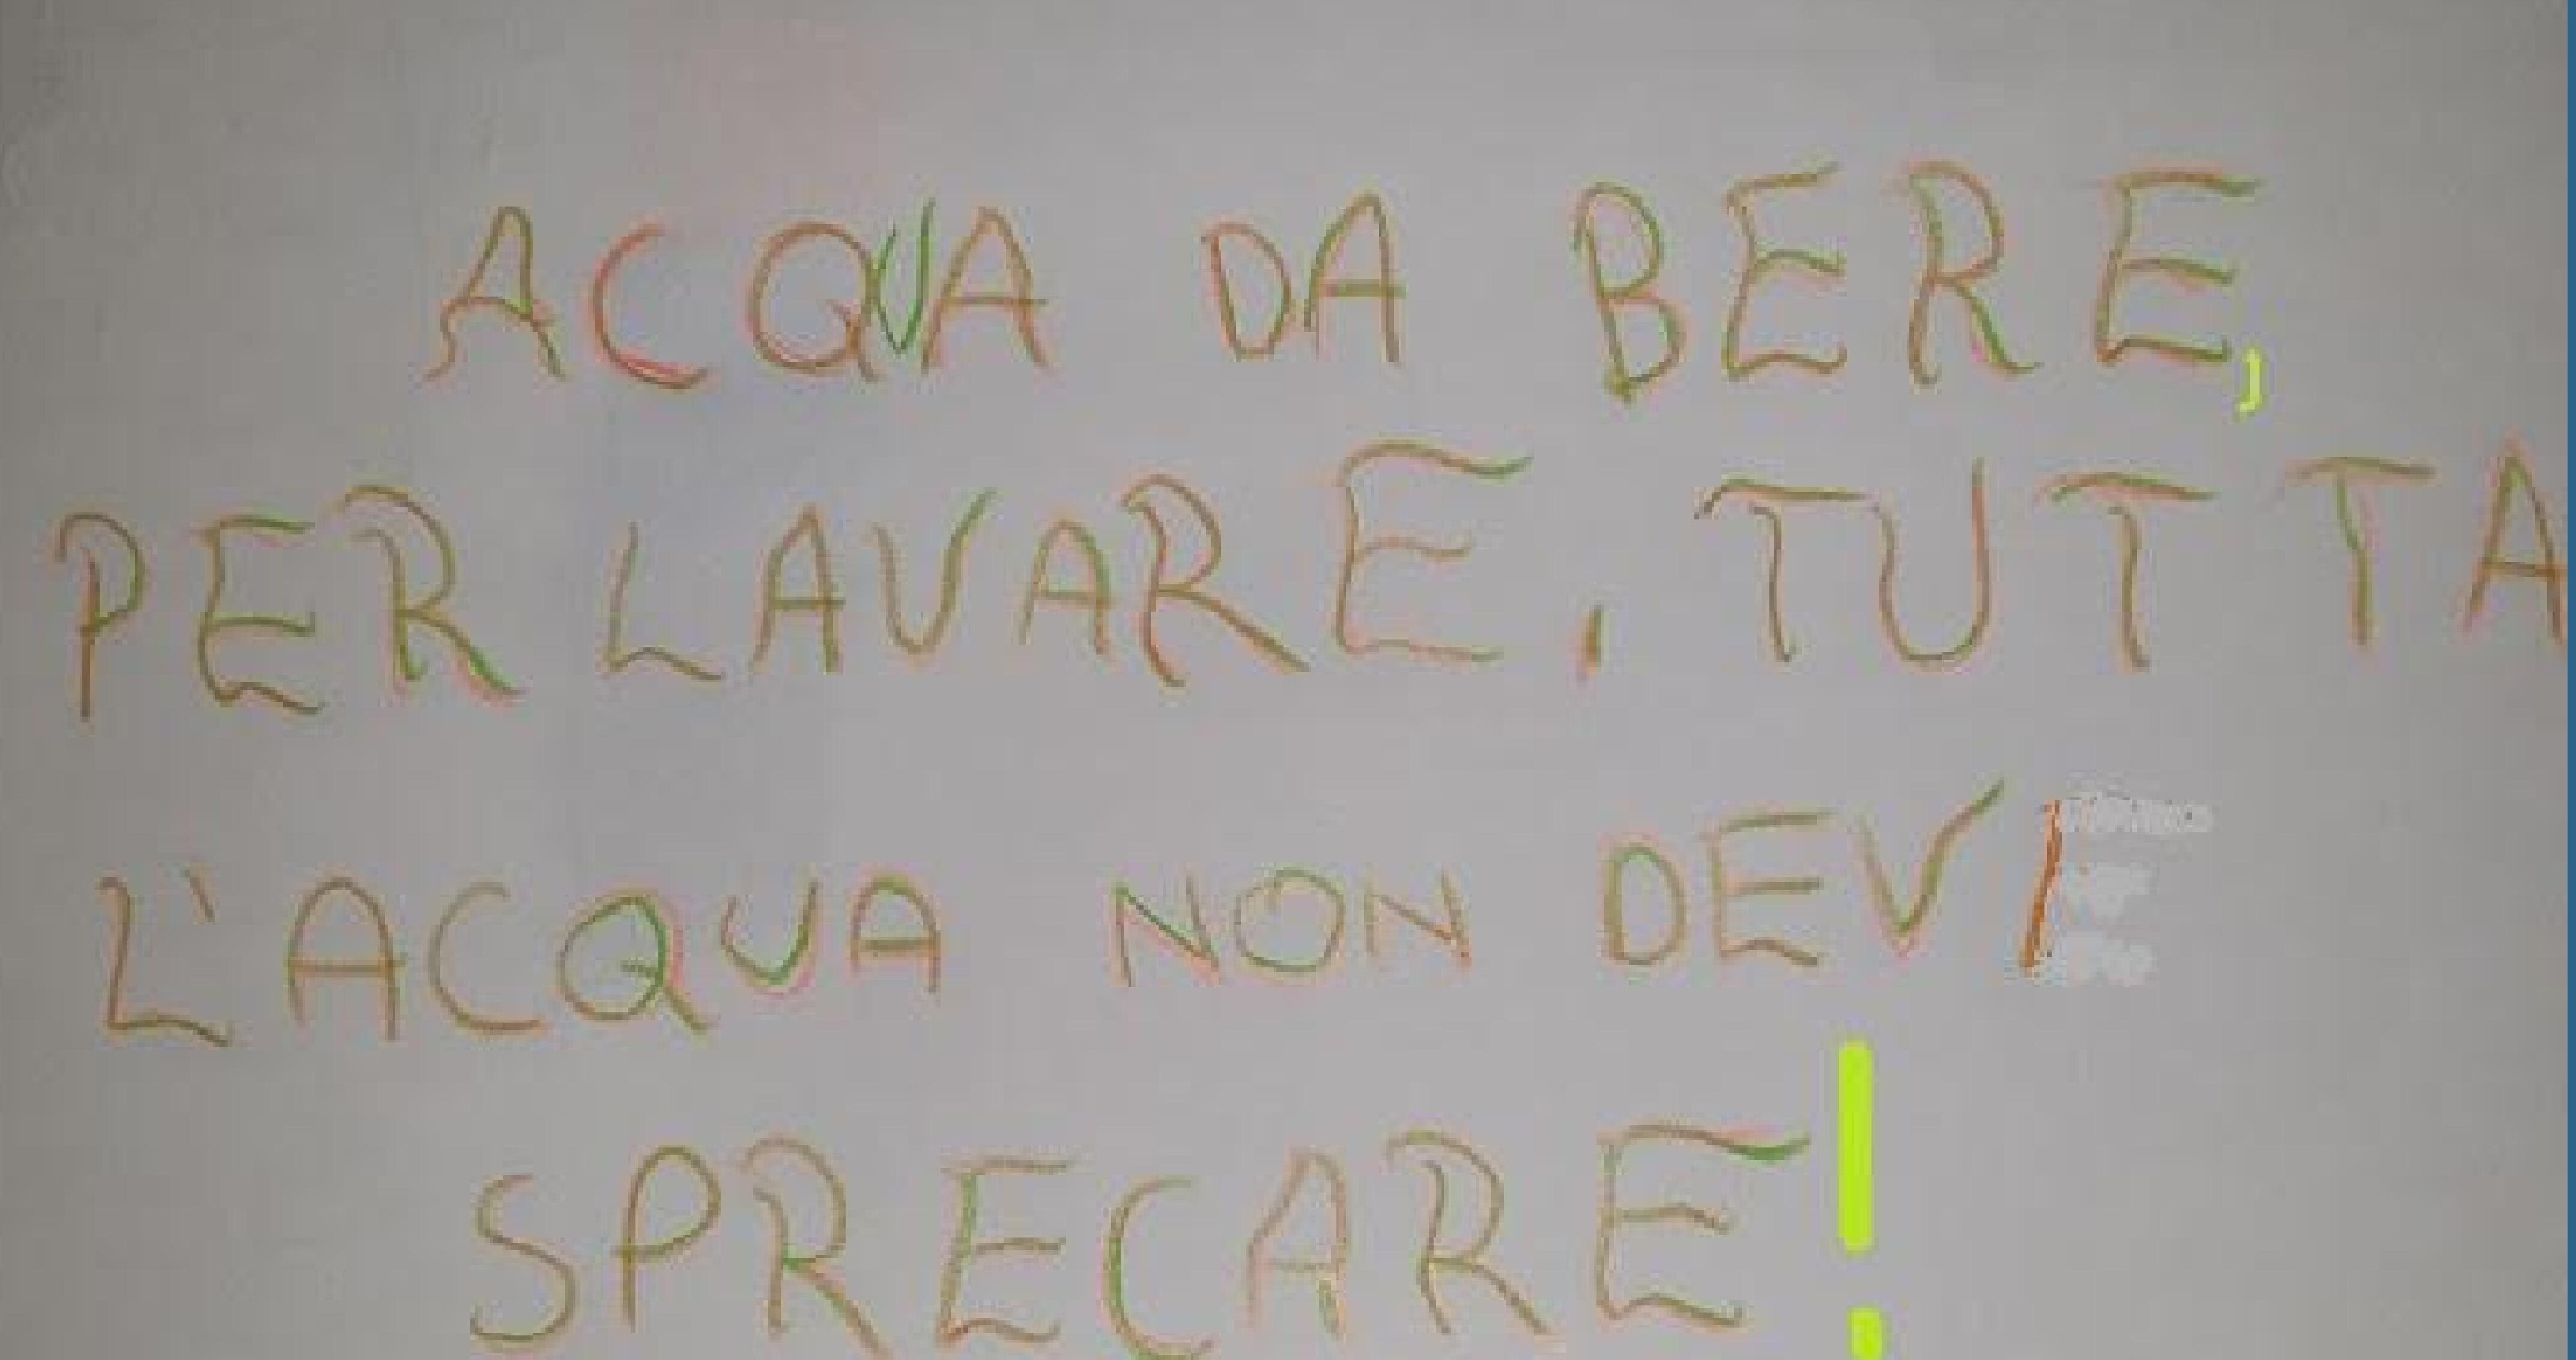 ACQUA DA BERE,
PER LAVARE, TUTTA
L'ACQUA NON DEVI
SPRECARE!